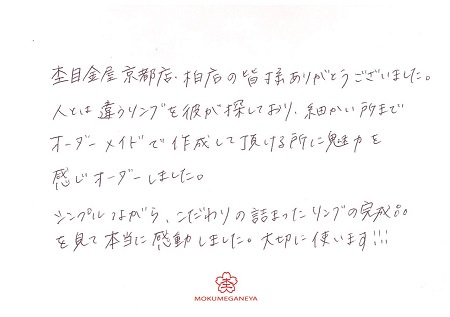 杢目金屋京都店、柏店の皆様ありがとうございました。
人とは違うリングを彼が探しており、細かい所まで
オーダーメイドで作成して頂ける所に魅力を
感じオーダーしました。
シンプルながら、こだわりの詰まったリングの完成品
を見て本当に感動しました。大切に使います!!!
杢
MOKUMEGANEYA